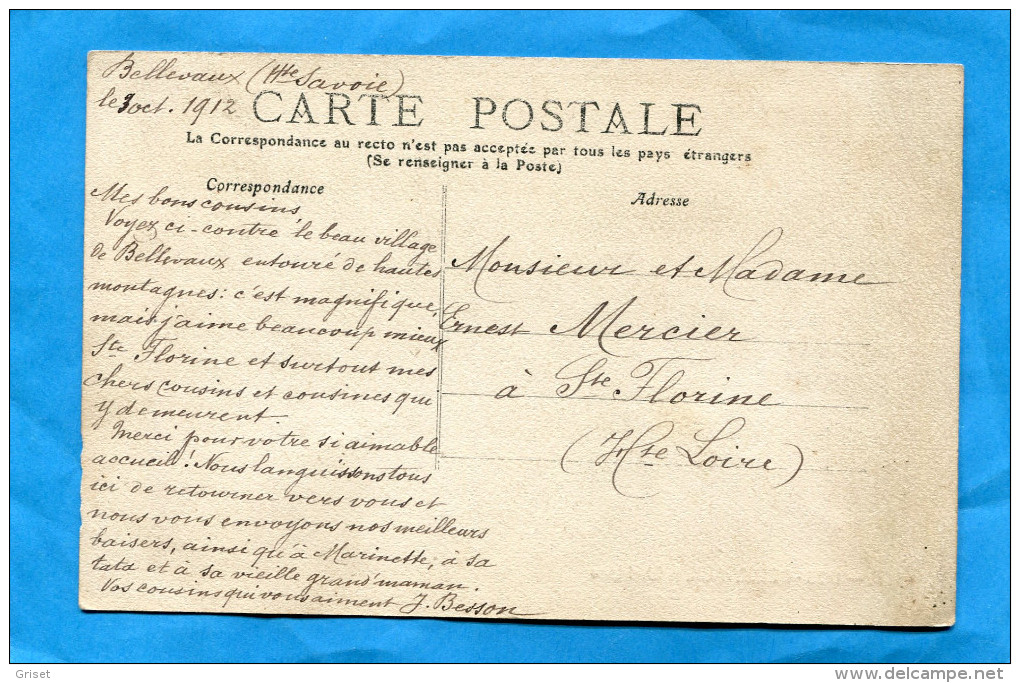 Bellevaux (Hte Savoie)
le 3 oct. 1912
CARTE POSTALE
La Correspondance au recto n'est pas acceptée par tous les pays étrangers
(Se renseigner à la Poste)
Correspondance
Mes bons cousins,
Voyez ci-contre le beau village
de Bellevaux entouré de hautes
montagnes: c'est magnifique,
mais j'aime beaucoup mieux
Ste Florine et surtout mes
chers cousins et cousines qui
y demeurent.
Merci pour votre si aimable
accueil! Nous languissons tous
ici de retourner vers vous et
nous vous envoyons nos meilleurs
baisers, ainsi qu'à Marinette, à sa
tata et à sa vieille grand'maman.
Vos cousins qui vous aiment J. Besson
Adresse
Monsieur et Madame
Ernest Mercier
à Ste Florine
(Hte Loire)
Griset
delcampe.net